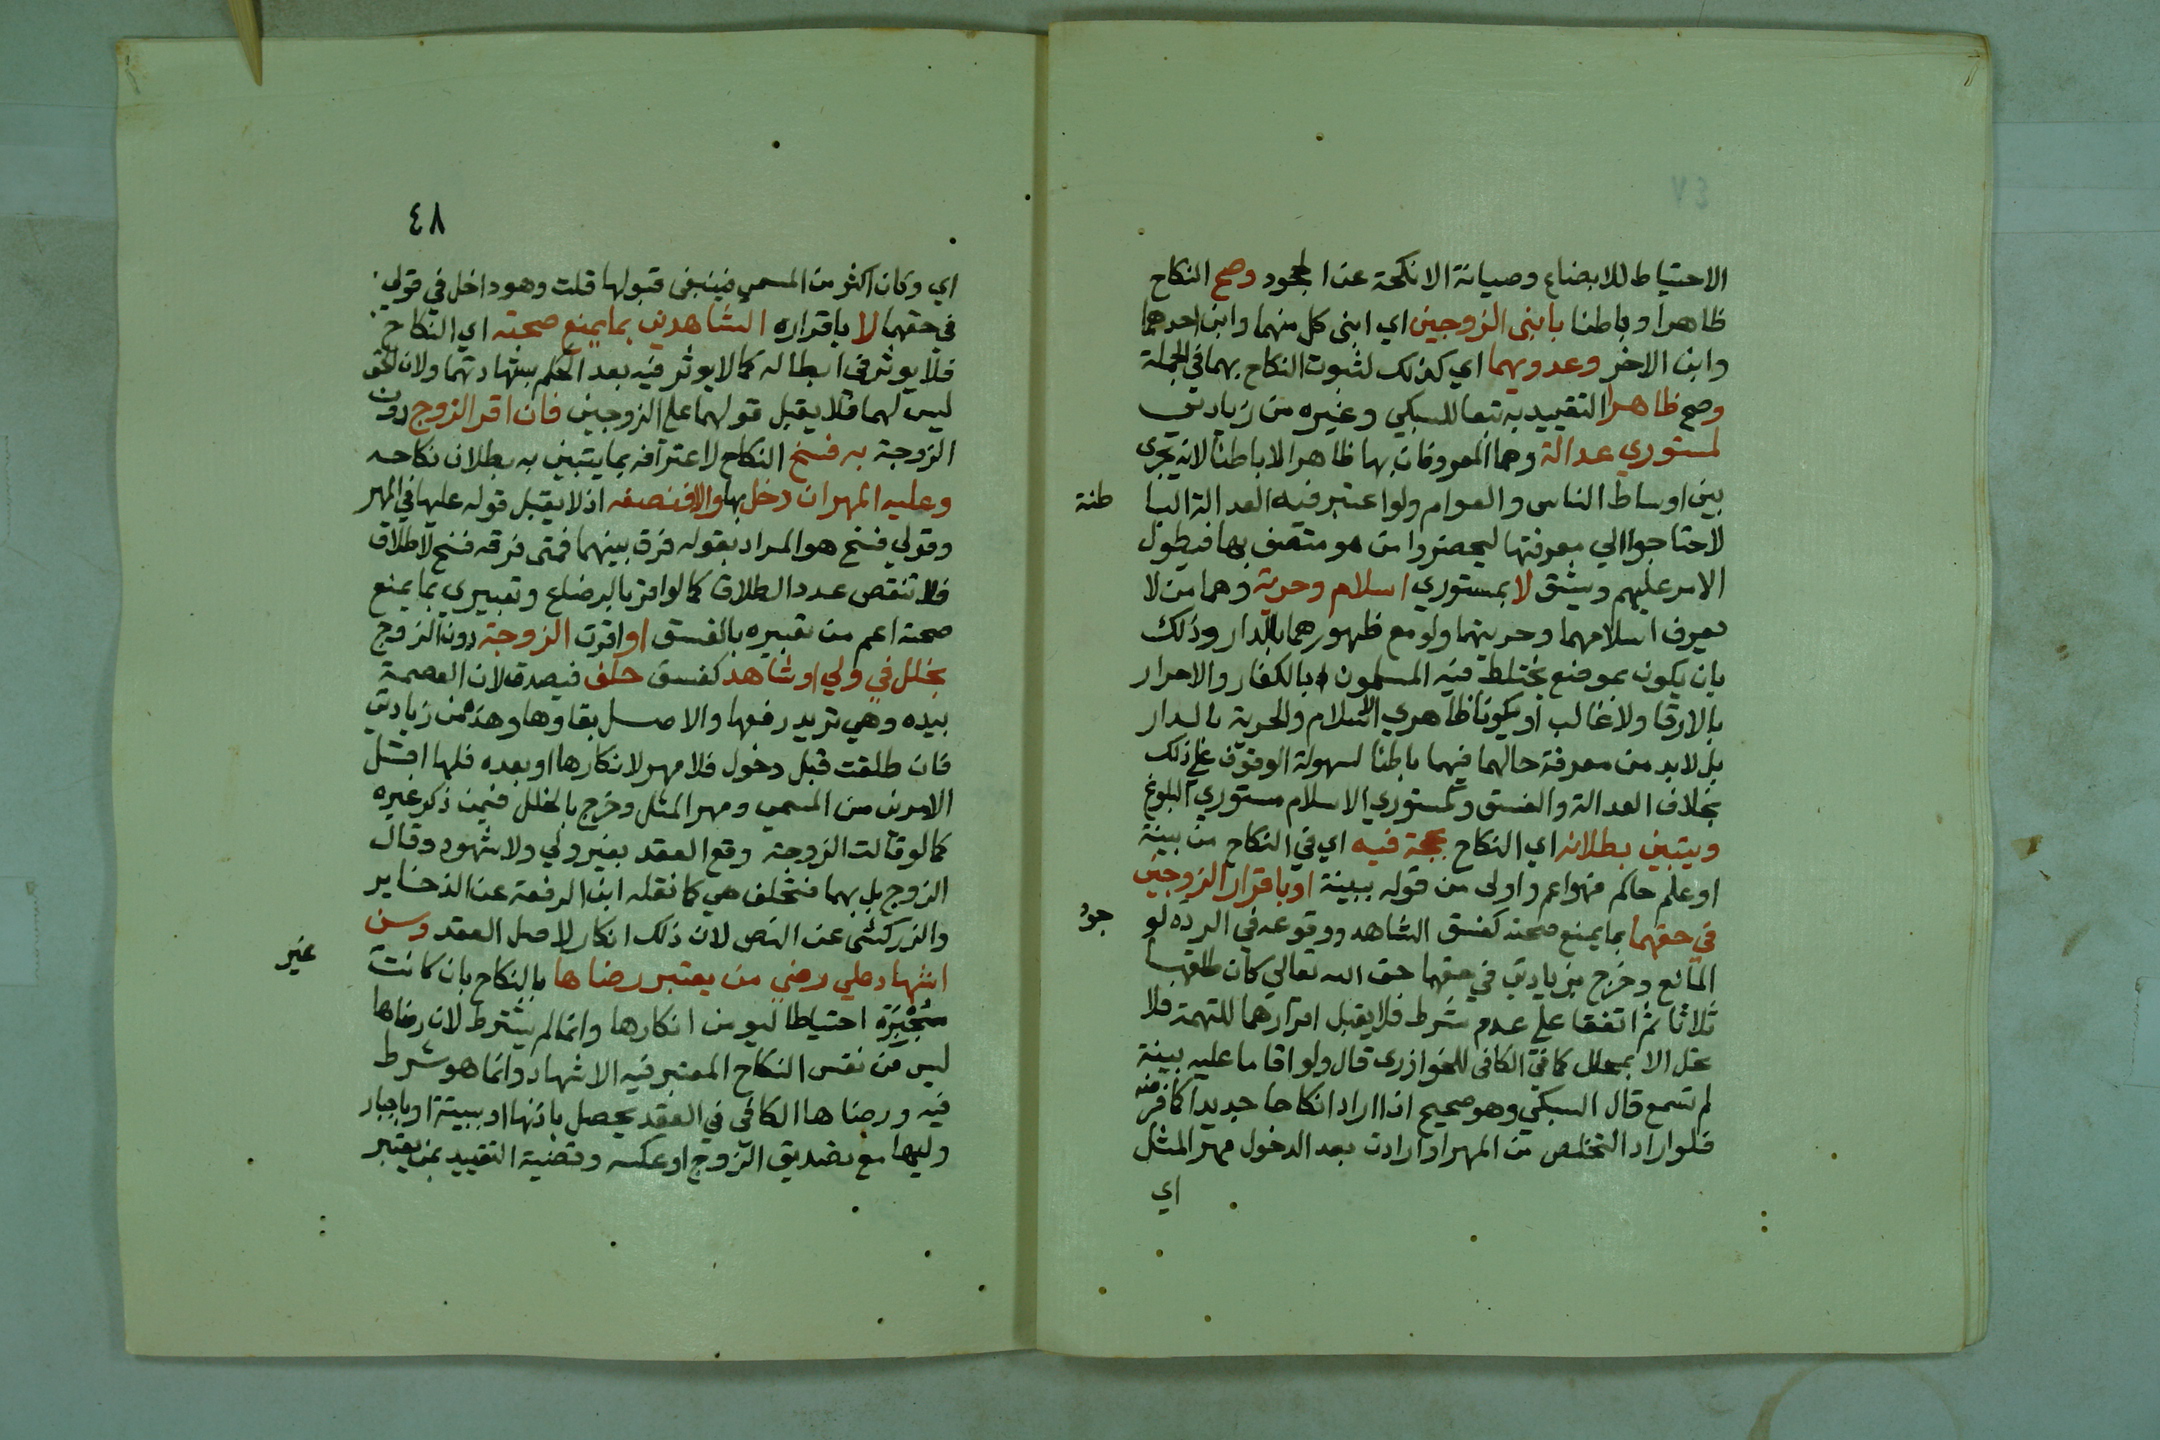 الاحتياط للابضاع وصيانة الانكحة عن الجحود وصح النكاح
ظاهرا وباطنا بابنى الزوجين اي ابنى كل منهما وابن احدهما
وابن الاخر وعدويهما اي كذلك لثبوت النكاح بهما في الجملة
وصح ظاهرا التقييد به تبعا للسبكي وغيره من زيادتي
لمستوري عدالة وهما المعروفان بها ظاهرا لا باطنا لانه يجرى
بين اوساط الناس والعوام ولو اعتبر فيه العدالة البا طنة
لاحتاجوا الي معرفتها ليحضروا من هو متصف بها فيطول
الامر عليهم ويشق لا بمستوري اسلام وحرية وهما من لا
يعرف اسلامهما وحريتهما ولو مع ظهورهما بالدار وذلك
بان يكون بموضع يختلط فيه المسلمون بالكفار والاحرار
بالارقا ولا غالب او يكونا ظاهري الاسلام والحرية بالدار
بل لابد من معرفة حالهما فيهما باطنا لسهولة الوقوف علي ذلك
بخلاف العدالة والفسق وكمستوري الاسلام مستوري البلوغ
ويتبين بطلانه اي النكاح بحجة فيه اي في النكاح من بينة
او علم حاكم فهو اعم واولى من قوله ببينة او باقرار الزوجين
في حقهما بما يمنع صحته كفسق الشاهد ووقوعه في الرده لو جود
المانع وخرج بزيادتي في حقهما حق الله تعالي كان طلقها
ثلاثا ثم اتفقا علي عدم شرط فلا يقبل اقرارهما للتهمة فلا
تحل الا بمحلل كما في الكافي للخوارزمي قال ولو اقاما عليه بينة
لم تسمع قال السبكي وهو صحيح اذا ارادا نكاحا جديدا كما فرضه
فلو اراد التخلص من المهر او ارادت بعد الدخول مهر المثل
اي
٤٨
اي وكان اكثر من المسمي فينبغى قبولها قلت وهو داخل في قولي
في حقهما لا باقراره الشاهدين بما يمنع صحته اي النكاح
فلا يوثر في ابطاله كما لا يوثر فيه بعد الحكم بشهادتهما ولان الحق
ليس لهما فلا يقبل قولهما علي الزوجين فان اقر الزوج دون
الزوجة به فسخ النكاح لاعترافه بما يتبين به بطلان نكاحه
وعليه المهر ان دخل بها والا فنصفه اذ لا يقبل قوله عليها في المهر
وقولي فسخ هو المراد بقوله فرق بينهما فمتى فرقه فسخ لا طلاق
فلا تنقص عدد الطلاق كما لو اقر بالرضاع وتعبيري بما يمنع
صحته اعم من تعبيره بالفسق او اقرت الزوجة دون الزوج
بخلل في ولي او شاهد كفسق حلف فيصدق لان العصمة
بيده وهي تريد رفعها والاصل بقاوها وهذه من زيادتي
فان طلقت قبل دخول فلا مهر لانكارها او بعده فلها اقل
الامرين من المسمي ومهر المثل وخرج بالخلل فيمن ذكر غيره
كما لو قالت الزوجة وقع العقد بغير ولي ولا شهود وقال
الزوج بل بهما فتحلف هي كما نقله ابن الرفعة عن الذخاير
والزركشي عن النص لان ذلك انكار لاصل العقد وسن
اشهاد علي رضي من يعتبر رضاها بالنكاح بان كانت غير
مجبرة احتياطا ليومن انكارها وانما لم يشترط لان رضاها
ليس من نفس النكاح المعتبر فيه الاشهاد وانما هو شرط
فيه ورضاها الكافي في العقد يحصل باذنها او ببينة او باخبار
وليها مع تصديق الزوج او عكسه وقضية التقييد بمن يعتبر